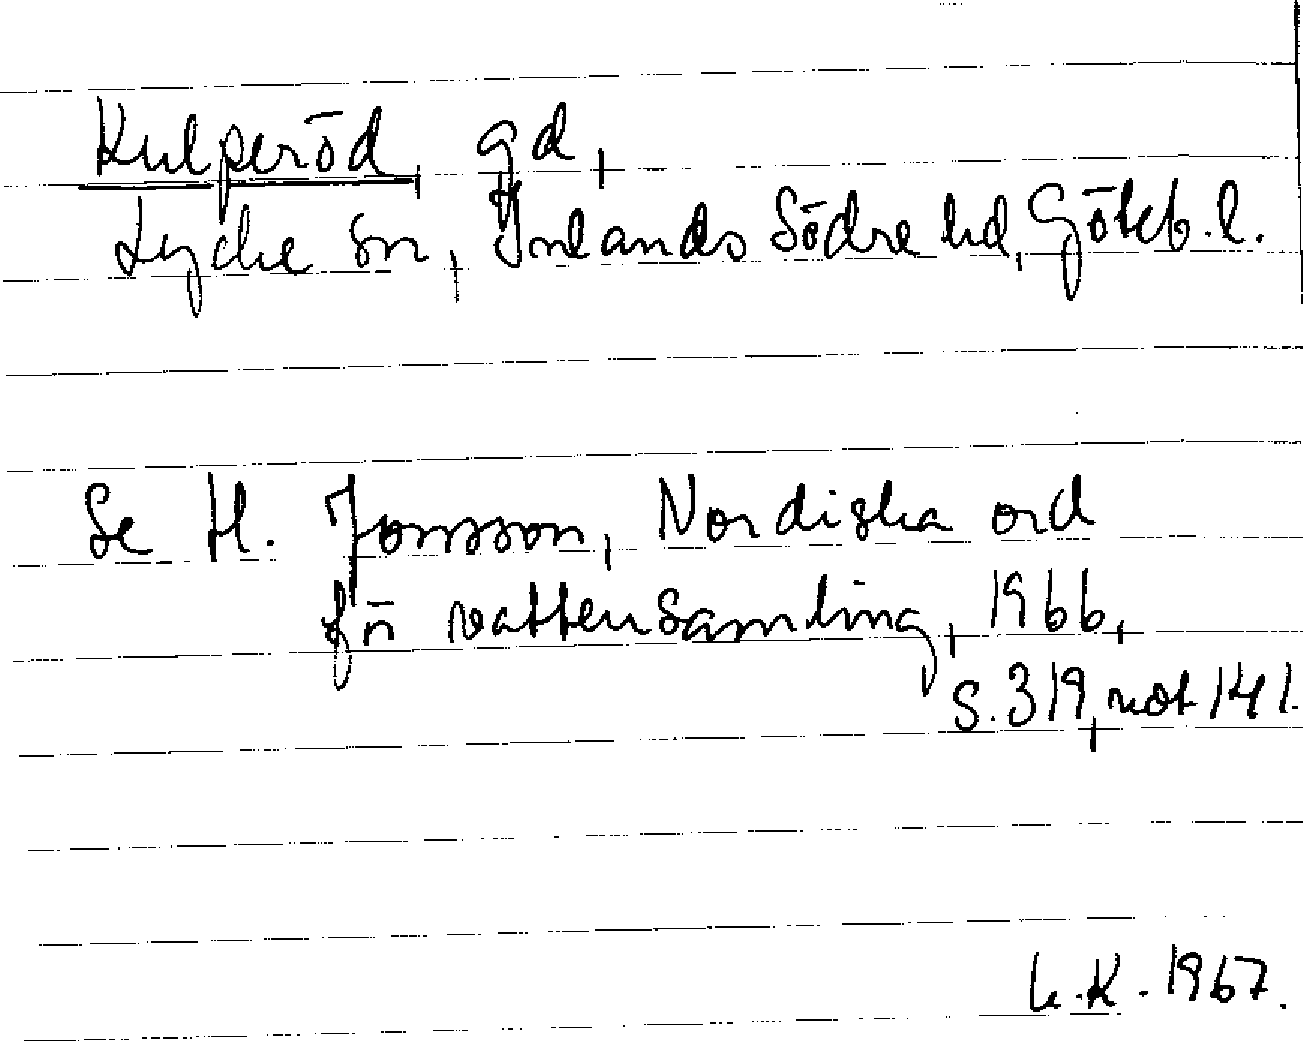 Kulperöd, gd,
Lycke sn, Inlands Södre hd, Göteb. l.
Se H. Jonsson, Nordiska ord
för vattensamling, 1966,
s. 319, not 141.
L.K. 1967.